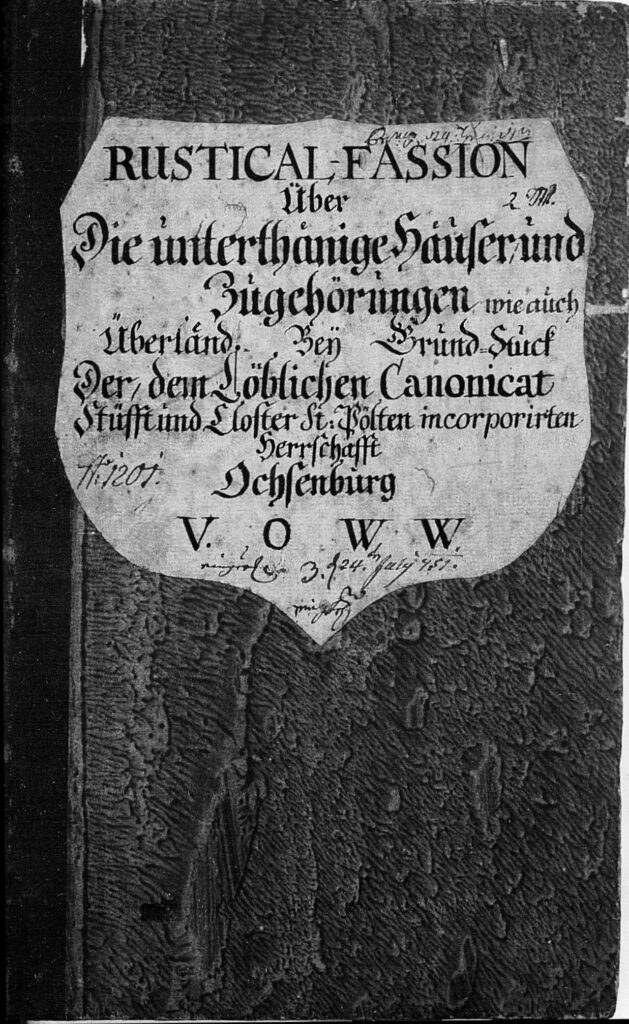 RUSTICAL-FASSION
Über
2 M.
Die unterthänige Häuser, und
Zugehörungen, wie auch
Überländ, Bey Grund-Stuck
Der, dem Löblichen Canonicat
Stüfft und Closter St: Pölten incorporirten
Herrschafft
Nr. 1201.
Ochsenburg
V. O W W
3. 24. July 751.